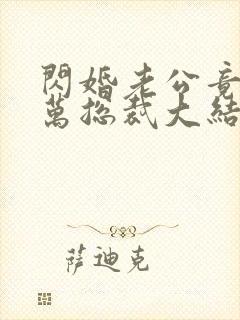 閃婚老公竟
萬總裁大結
萨迪克